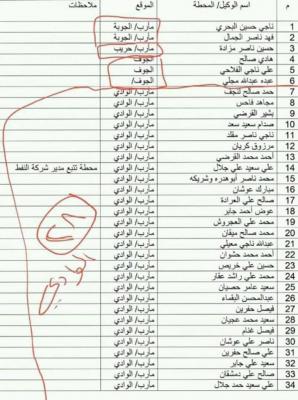 م اسم الوكيل/ المحطة الموقع ملاحظات
1 ناجي حسين البحري مأرب/ الجوبة
2 فهد ناصر الجمال مأرب/ الجوبة
3 حسين ناصر مزادة مأرب/ حريب
4 هادي صالح الجوف
5 علي ناجي الفلاحي الجوف
6 عبده عبدالله مجلي الجوف/
7 حمد صالح لنجف مأرب/ الوادي
8 مجاهد فاحس مأرب/ الوادي
9 بشير القرضي مأرب/ الوادي
10 صدام سعيد سعد مأرب/ الوادي
11 ناجي ناصر مقلد مأرب/ الوادي
12 مرزوق كريان مأرب/ الوادي
13 أحمد محمد القرضي مأرب/ الوادي
14 علي سعيد علي جلال مأرب/ الوادي محطة تتبع مدير شركة النفط
15 محمد ناصر أبوهدره وشريكه مأرب/ الوادي
16 مبارك عوشان مأرب/ الوادي
17 صالح علي العرادة مأرب/ الوادي
18 عوض أحمد جابر مأرب/ الوادي
19 محمد علي العجروش مأرب/ الوادي
20 محمد صالح ميقان مأرب/ الوادي
21 عبدالله ناجي معيلي مأرب/ الوادي
22 أحمد محمد حشوان مأرب/ الوادي
23 حسين علي خريص مأرب/ الوادي
24 محمد علي راشد عقار مأرب/ الوادي
25 سعيد عامر حصيان مأرب/ الوادي
26 عبدالمحسن البقماء مأرب/ الوادي
27 فيصل حفرين مأرب/ الوادي
28 سعيد محمد عجيان مأرب/ الوادي
29 فيصل غنام مأرب/ الوادي
30 ناصر علي عوشان مأرب/ الوادي
31 علي صالح حفرين مأرب/ الوادي
32 سعيد علي جابر مأرب/ الوادي
33 صالح علي دمشقان مأرب/ الوادي
34 علي سعيد حمد جلال مأرب/ الوادي
٢٨
الوادي